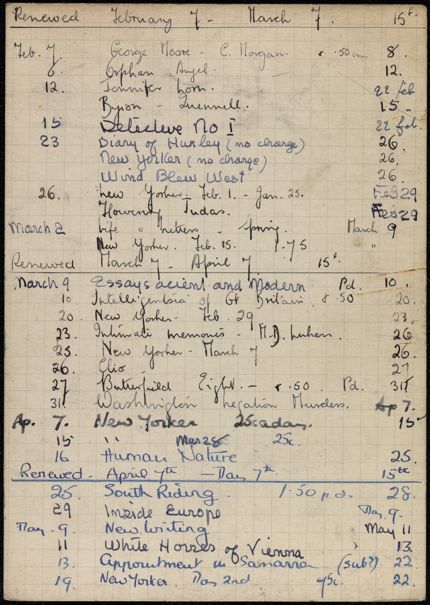 Renewed February 7 - March 7. 15f.
Feb. 7. George Moore - C. Morgan. .50 8.
Orphan Angel. 12.
12. Jennifer Lorn. 22 feb
Byron - Quennell. 15 -
15 Detective No 1 22 feb.
23 Diary of Huxley (no charge) 26.
New Yorker (no charge) 26.
Wind Blew West 26.
26. New Yorker. Feb. 1. - Jan. 25. Feb 29
Flowering Judas. Feb 29
March 2 Life & Letters - Spring. March 9
New Yorker. Feb. 15. 1.75 "
Renewed March 7 - April 7 15f.
March 9 Essays ancient and Modern Pd. 10.
10 Intelligentsia of Gt Britain. 50 20.
20 New Yorker. Feb. 29 23.
23. Intimate memories - M.D. Luhan. 26
25. New Yorker - March 7 26.
26. Clio 27
27 Butterfield Eight. - .50. Pd. 31
31 Washington Legation Murders. Ap 7.
Ap. 7. New Yorker 15
15 " Mar 28 25c.
16 Human Nature 25.
Renewed. April 7th - May 7th. 15th
25. South Riding. 1.50 pd. 28.
29 Inside Europe May 9.
May. 9. New Writing May 11
11 White Horses of Vienna 13.
13. Appointment in Samarra (sub?) 22
19 New Yorker. May 2nd 22.